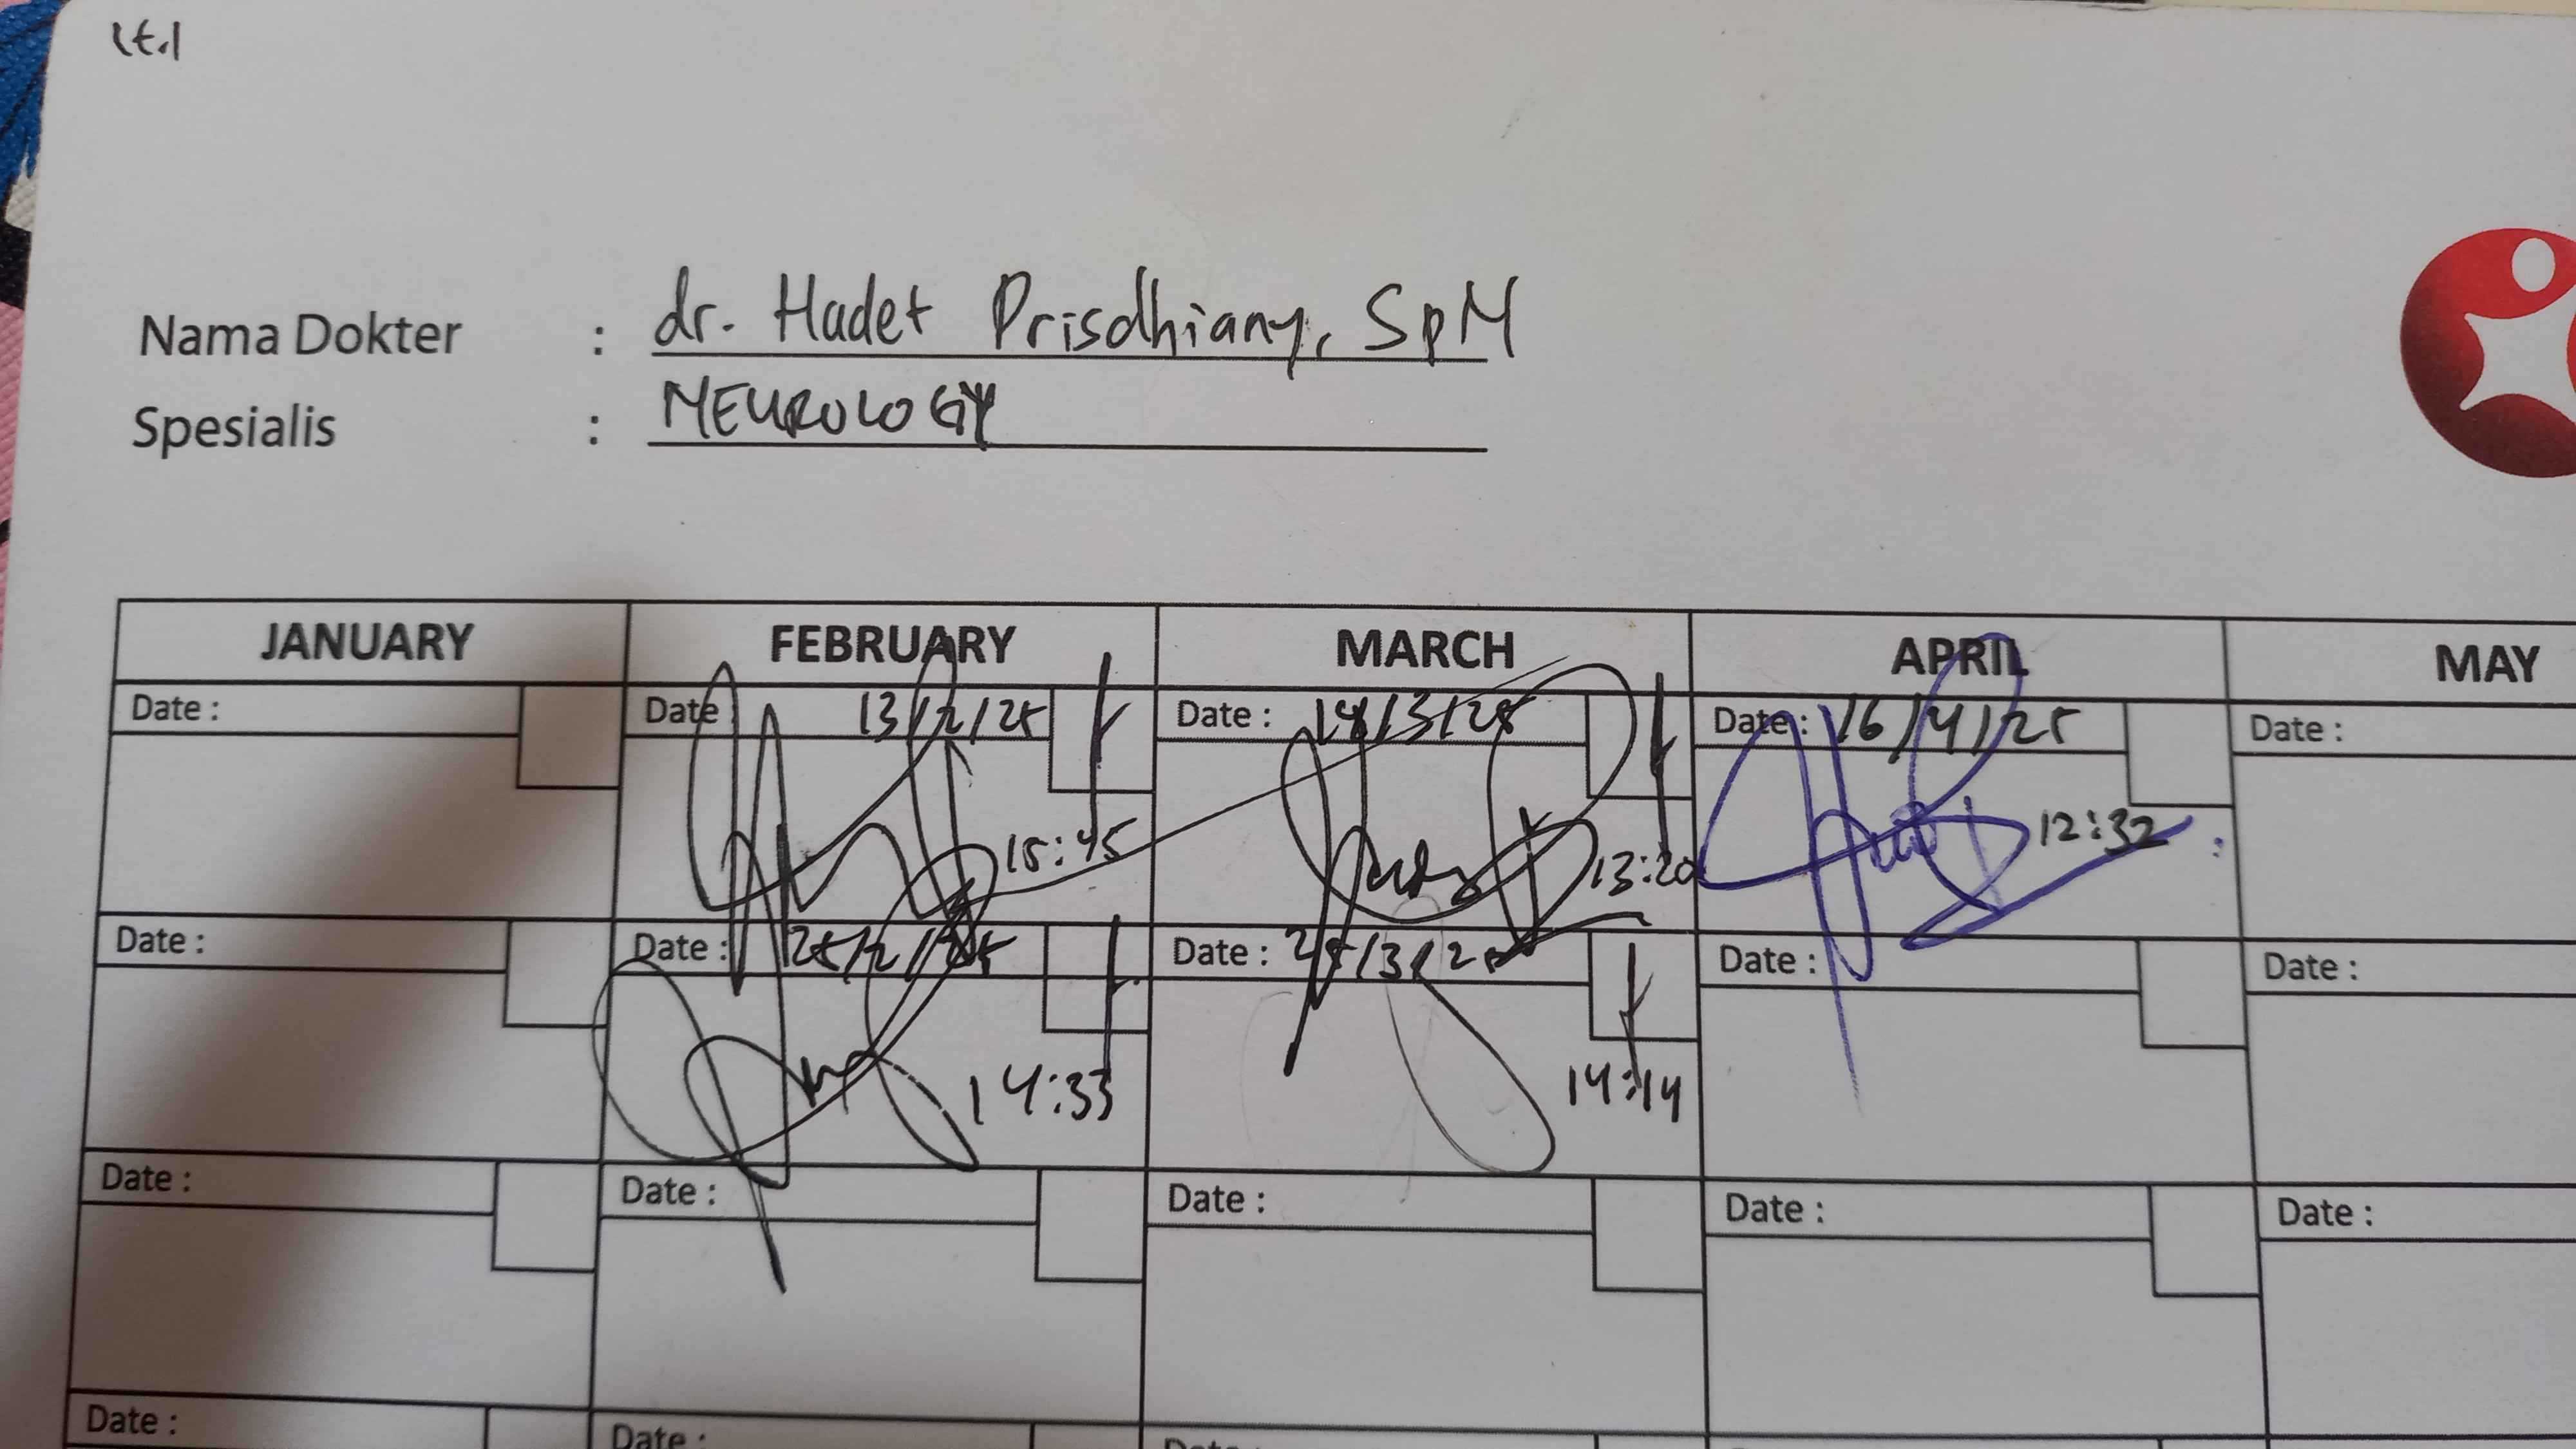 lt.1
Nama Dokter : dr. Hadet Prisdhiany, SpM
Spesialis : NEUROLOGY
JANUARY FEBRUARY MARCH APRIL MAY
Date : Date 13/2/25 Date : 14/3/25 Date : 16/4/25 Date :
15:45 13:20 12:32
Date : Date : 25/2/25 Date : 25/3/25 Date : Date :
14:33 14:14
Date : Date : Date : Date : Date :
Date : Date :